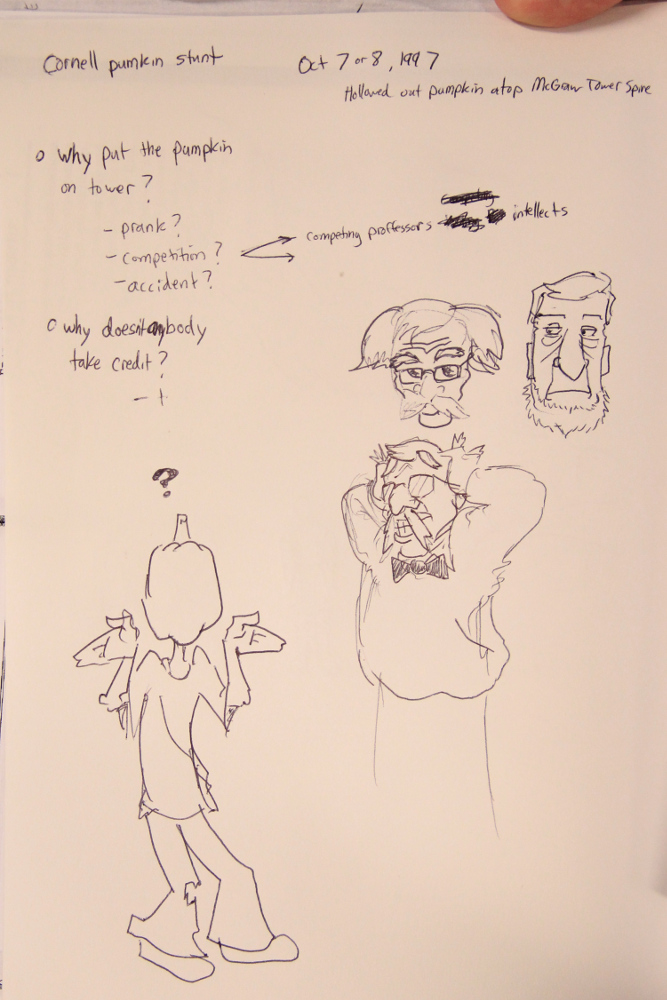 Cornell pumkin stunt
Oct 7 or 8, 1997
Hollowed out pumpkin atop McGraw Tower Spire
o Why put the pumpkin
on tower?
- prank?
- competition?
- accident?
competing proffessors intellects
o why doesn't anybody
take credit?
- t
?